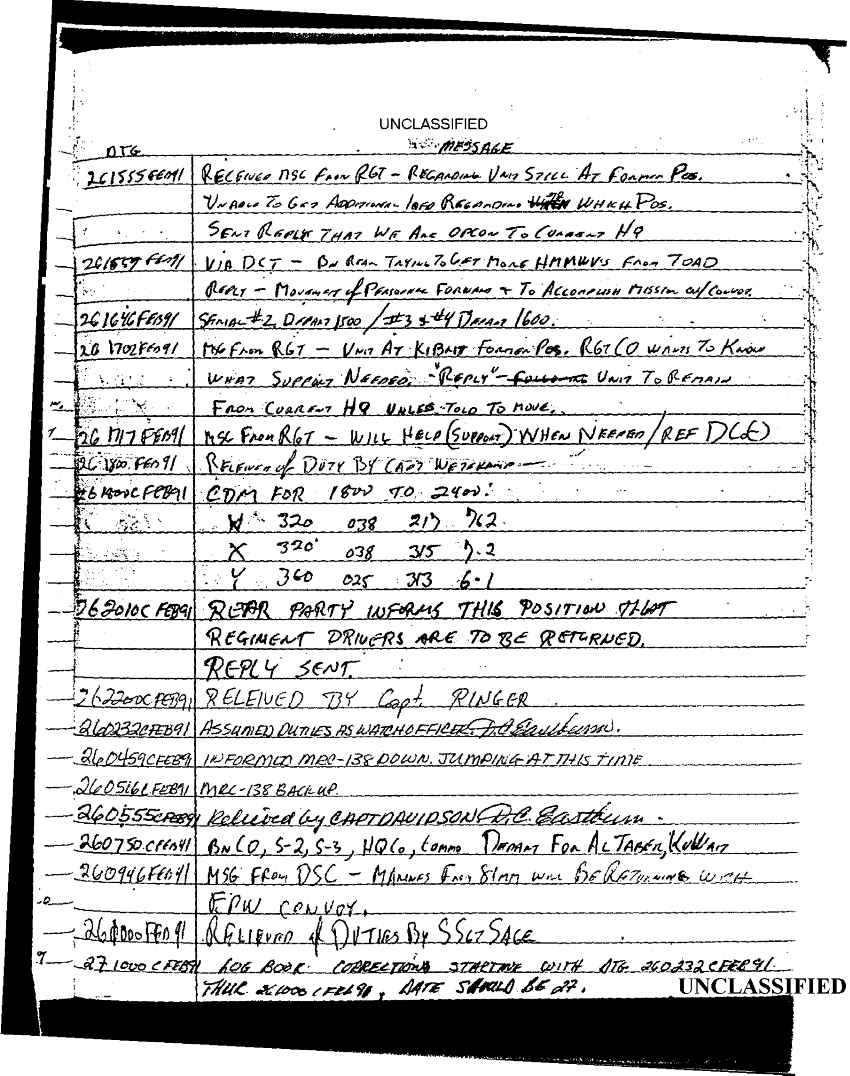 UNCLASSIFIED
DTG MESSAGE
261555FEB91 RECEIVED MSG FROM RGT - REGARDING UNIT STILL AT FORMER POS.
UNABLE TO GET ADDITIONAL INFO REGARDING WHICH POS.
SENT REPLY THAT WE ARE OPCON TO CURRENT HQ
261559 FEB91 VIA DCT - BN REAR TRYING TO GET MORE HMMWV'S FROM TOAD
REPLY - MOVEMENT OF PERSONNEL FORWARD & TO ACCOMPLISH MISSION W/CONVOY.
261646FEB91 SERIAL #2 DEPART 1500 / #3 & #4 DEPART 1600.
261702FEB91 MSG FROM RGT - UNIT AT KIBRIT FORMER POS. RGT CO WANTS TO KNOW
WHAT SUPPORT NEEDED. "REPLY" - FOLLOWING UNIT TO REMAIN
FROM CURRENT HQ UNLES TOLD TO MOVE.
261717FEB91 MSG FROM RGT - WILL HELP (SUPPORT) WHEN NEEDED / REF
261800FEB91 RELIEVED OF DUTY BY CAPT
261800C FEB91 CDM FOR 1800 TO 2400:
W 320 038 217 7.62
X 320 038 315 7.2
Y 360 025 313 6.1
262010C FEB91 REAR PARTY INFORMS THIS POSITION THAT
REGIMENT DRIVERS ARE TO BE RETURNED.
REPLY SENT.
262200CFEB91 RELEIVED BY Capt. RINGER
260232CFEB91 ASSUMED DUTIES AS WATCH OFFICER. D.C. Eastburn.
260459CFEB91 INFORMED MRC-138 DOWN. JUMPING AT THIS TIME
260516CFEB91 MRC-138 BACK UP.
260555CFEB91 Relieved by CAPT DAVIDSON D.C. Eastburn.
260750CFEB91 BN CO, S-2, S-3, HQ Co, COMMO DEPART FOR AL TABER, KUWAIT
260946FEB91 MSG FROM DSC - MARINES FROM 81MM WILL BE RETURNING WITH
EPW CONVOY.
261000FEB91 RELIEVED OF DUTIES BY SSGT SAGE
271000CFEB91 LOG BOOK CORRECTIONS STARTING WITH DTG 260232CFEB91
THUR 261000CFEB91, DATE SHOULD BE 27.
UNCLASSIFIED